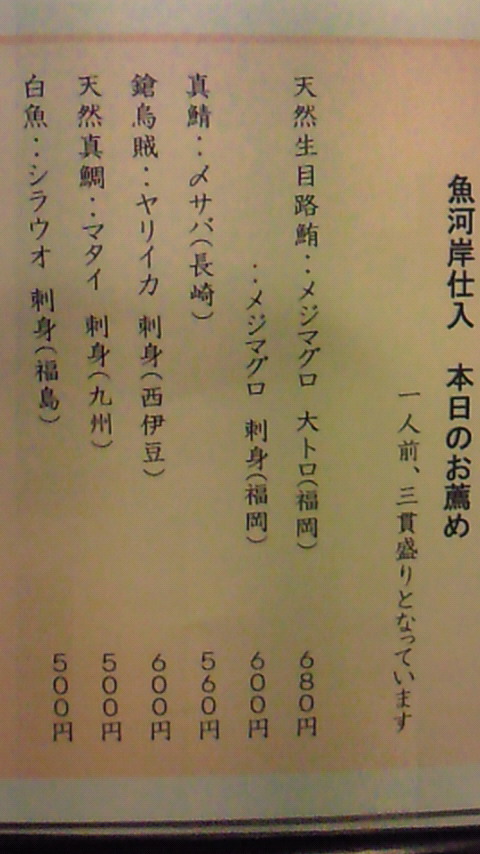 魚河岸仕入　本日のお薦め
一人前、三貫盛りとなっています
天然生目路鮪：メジマグロ　大トロ（福岡）　６８０円
：メジマグロ　刺身（福岡）　６００円
真鯖：〆サバ（長崎）　５６０円
鎗烏賊：ヤリイカ　刺身（西伊豆）　６００円
天然真鯛：マタイ　刺身（九州）　５００円
白魚：シラウオ　刺身（福島）　５００円